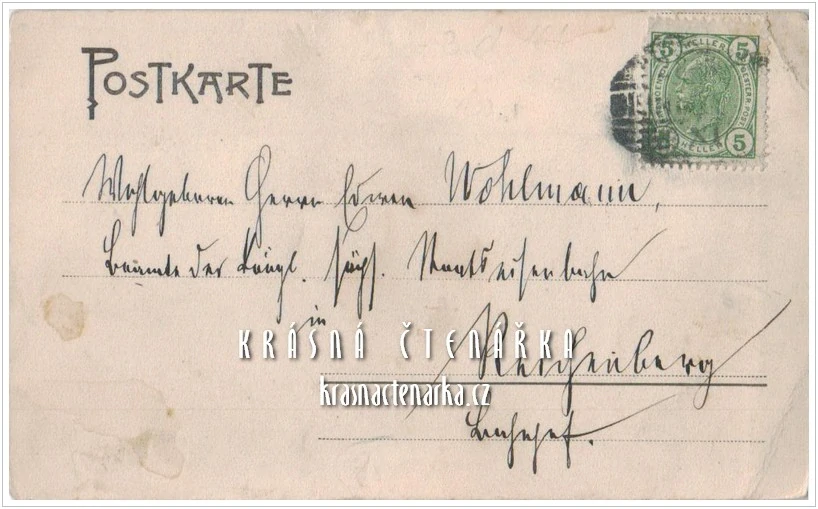 POSTKARTE
5 HELLER 5
5 HELLER 5
Wohlgeboren Herrn Edwin Wohlmann,
Beamte der Königl. sächs. Staatseisenbahn
in
KRÁSNÁ ČTENÁŘKA
Reichenberg
krasnactenarka.cz
Bahnhof.